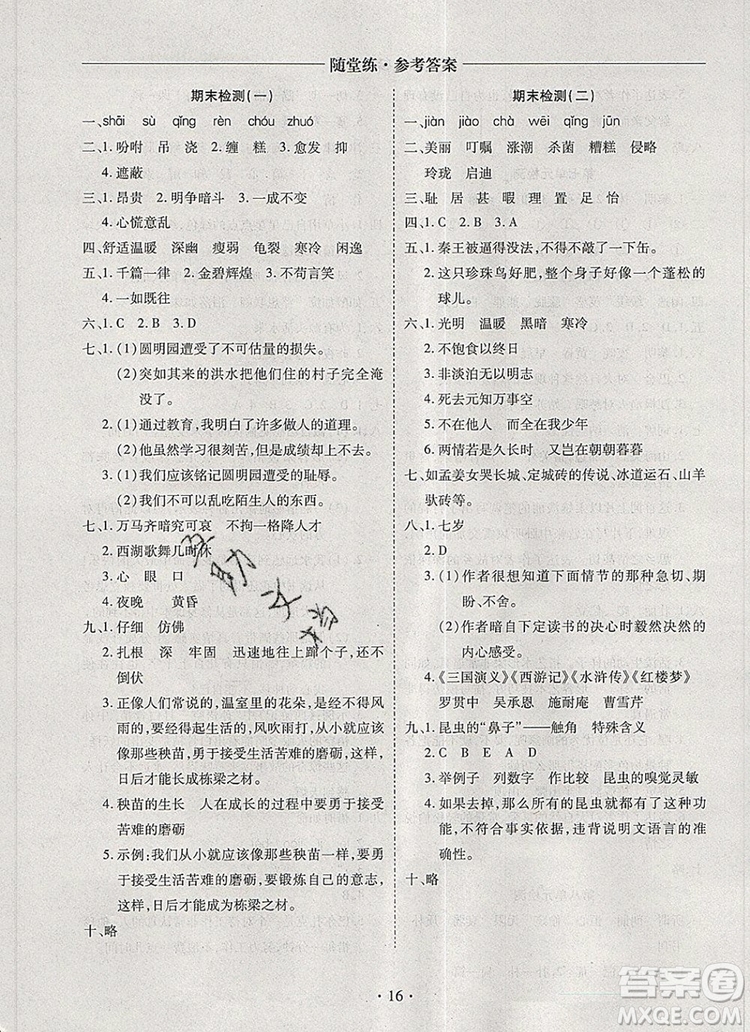 随堂练·参考答案
期末检测(一)
一、shāi sù qīng rèn chóu zhuó
二、1.吩咐 吊 浇 2.缠 糕 3.愈 发 抑
4.遮蔽
三、1.昂贵 2.明争暗斗 3.一成不变
4.心慌意乱
四、舒适温暖 深幽 瘦弱 龟裂 寒冷 闲逸
五、1.千篇一律 2.金碧辉煌 3.不苟言笑
4.一如既往
六、1.C 2.B 3.D
七、1.(1)圆明园遭受了不可估量的损失。
(2)突如其来的洪水把他们住的村子完全淹
没了。
2.(1)通过教育,我明白了许多做人的道理。
(2)他虽然学习很刻苦,但是成绩却上不去。
3.(1)我们应该铭记圆明园遭受的耻辱。
(2)我们不可以乱吃陌生人的东西。
七、1.万马齐喑究可哀 不拘一格降人才
2.西湖歌舞几时休
3.心 眼 口
4.夜晚 黄昏
九、1.仔细 仿佛
2.扎根 深 牢固 迅速地往上蹿个子,却不
倒伏
3.正像人们常说的,温室里的花朵,是不能经风
雨的,要经得起生活的磨砺,从小就应该
像那些秧苗一样,勇于接受生活苦难的磨砺,这样,
日后才能长成栋梁之材。
4.秧苗的生长 人在成长的过程中要勇于接受
苦难的磨砺
5.示例:我们从小就应该像那些秧苗一样,要勇
于接受生活苦难的磨砺,要锻炼自己的意志,这样,
日后才能成为栋梁之材。
十、略
期末检测(二)
一、jiàn jiào chà wēi qǐng jūn
二、美丽 叮嘱 涨潮 杀菌 糟糕 侵略
玲珑 启迪
三、耻 居 甚 暇 理 置 足 怡
四、1.C 2.B 3.A
五、1.秦王被逼得没法,不得不敲了一下缶。
2.这只珍珠鸟好肥,整个身子好像一个蓬松的
球儿。
六、1.光明 温暖 黑暗 寒冷
2.不饱食以终日
3.非淡泊无以明志
4.死去元知万事空
5.不在他人 而全在我少年
6.两情若是久长时 又岂在朝朝暮暮
七、如孟姜女哭长城、定城砖的传说、冰道运石、山羊
驮砖等
八、1.七岁
2.D
3.(1)作者很想知道下面情节的那种急切、期
盼、不舍。
(2)作者暗自下定读书的决心时毅然决然的
内心感受。
4.《三国演义》《西游记》《水浒传》《红楼梦》
罗贯中 吴承恩 施耐庵 曹雪芹
九、1.昆虫的“鼻子”——触角 特殊含义
2.C B E A D
3.举例子 列数字 作比较 昆虫的嗅觉灵敏
4.如果去掉,那么所有的昆虫就都有了这种功
能,不符合事实依据,违背说明文语言的准
确性。
十、略
·16·
答案圈
MXQE.COM